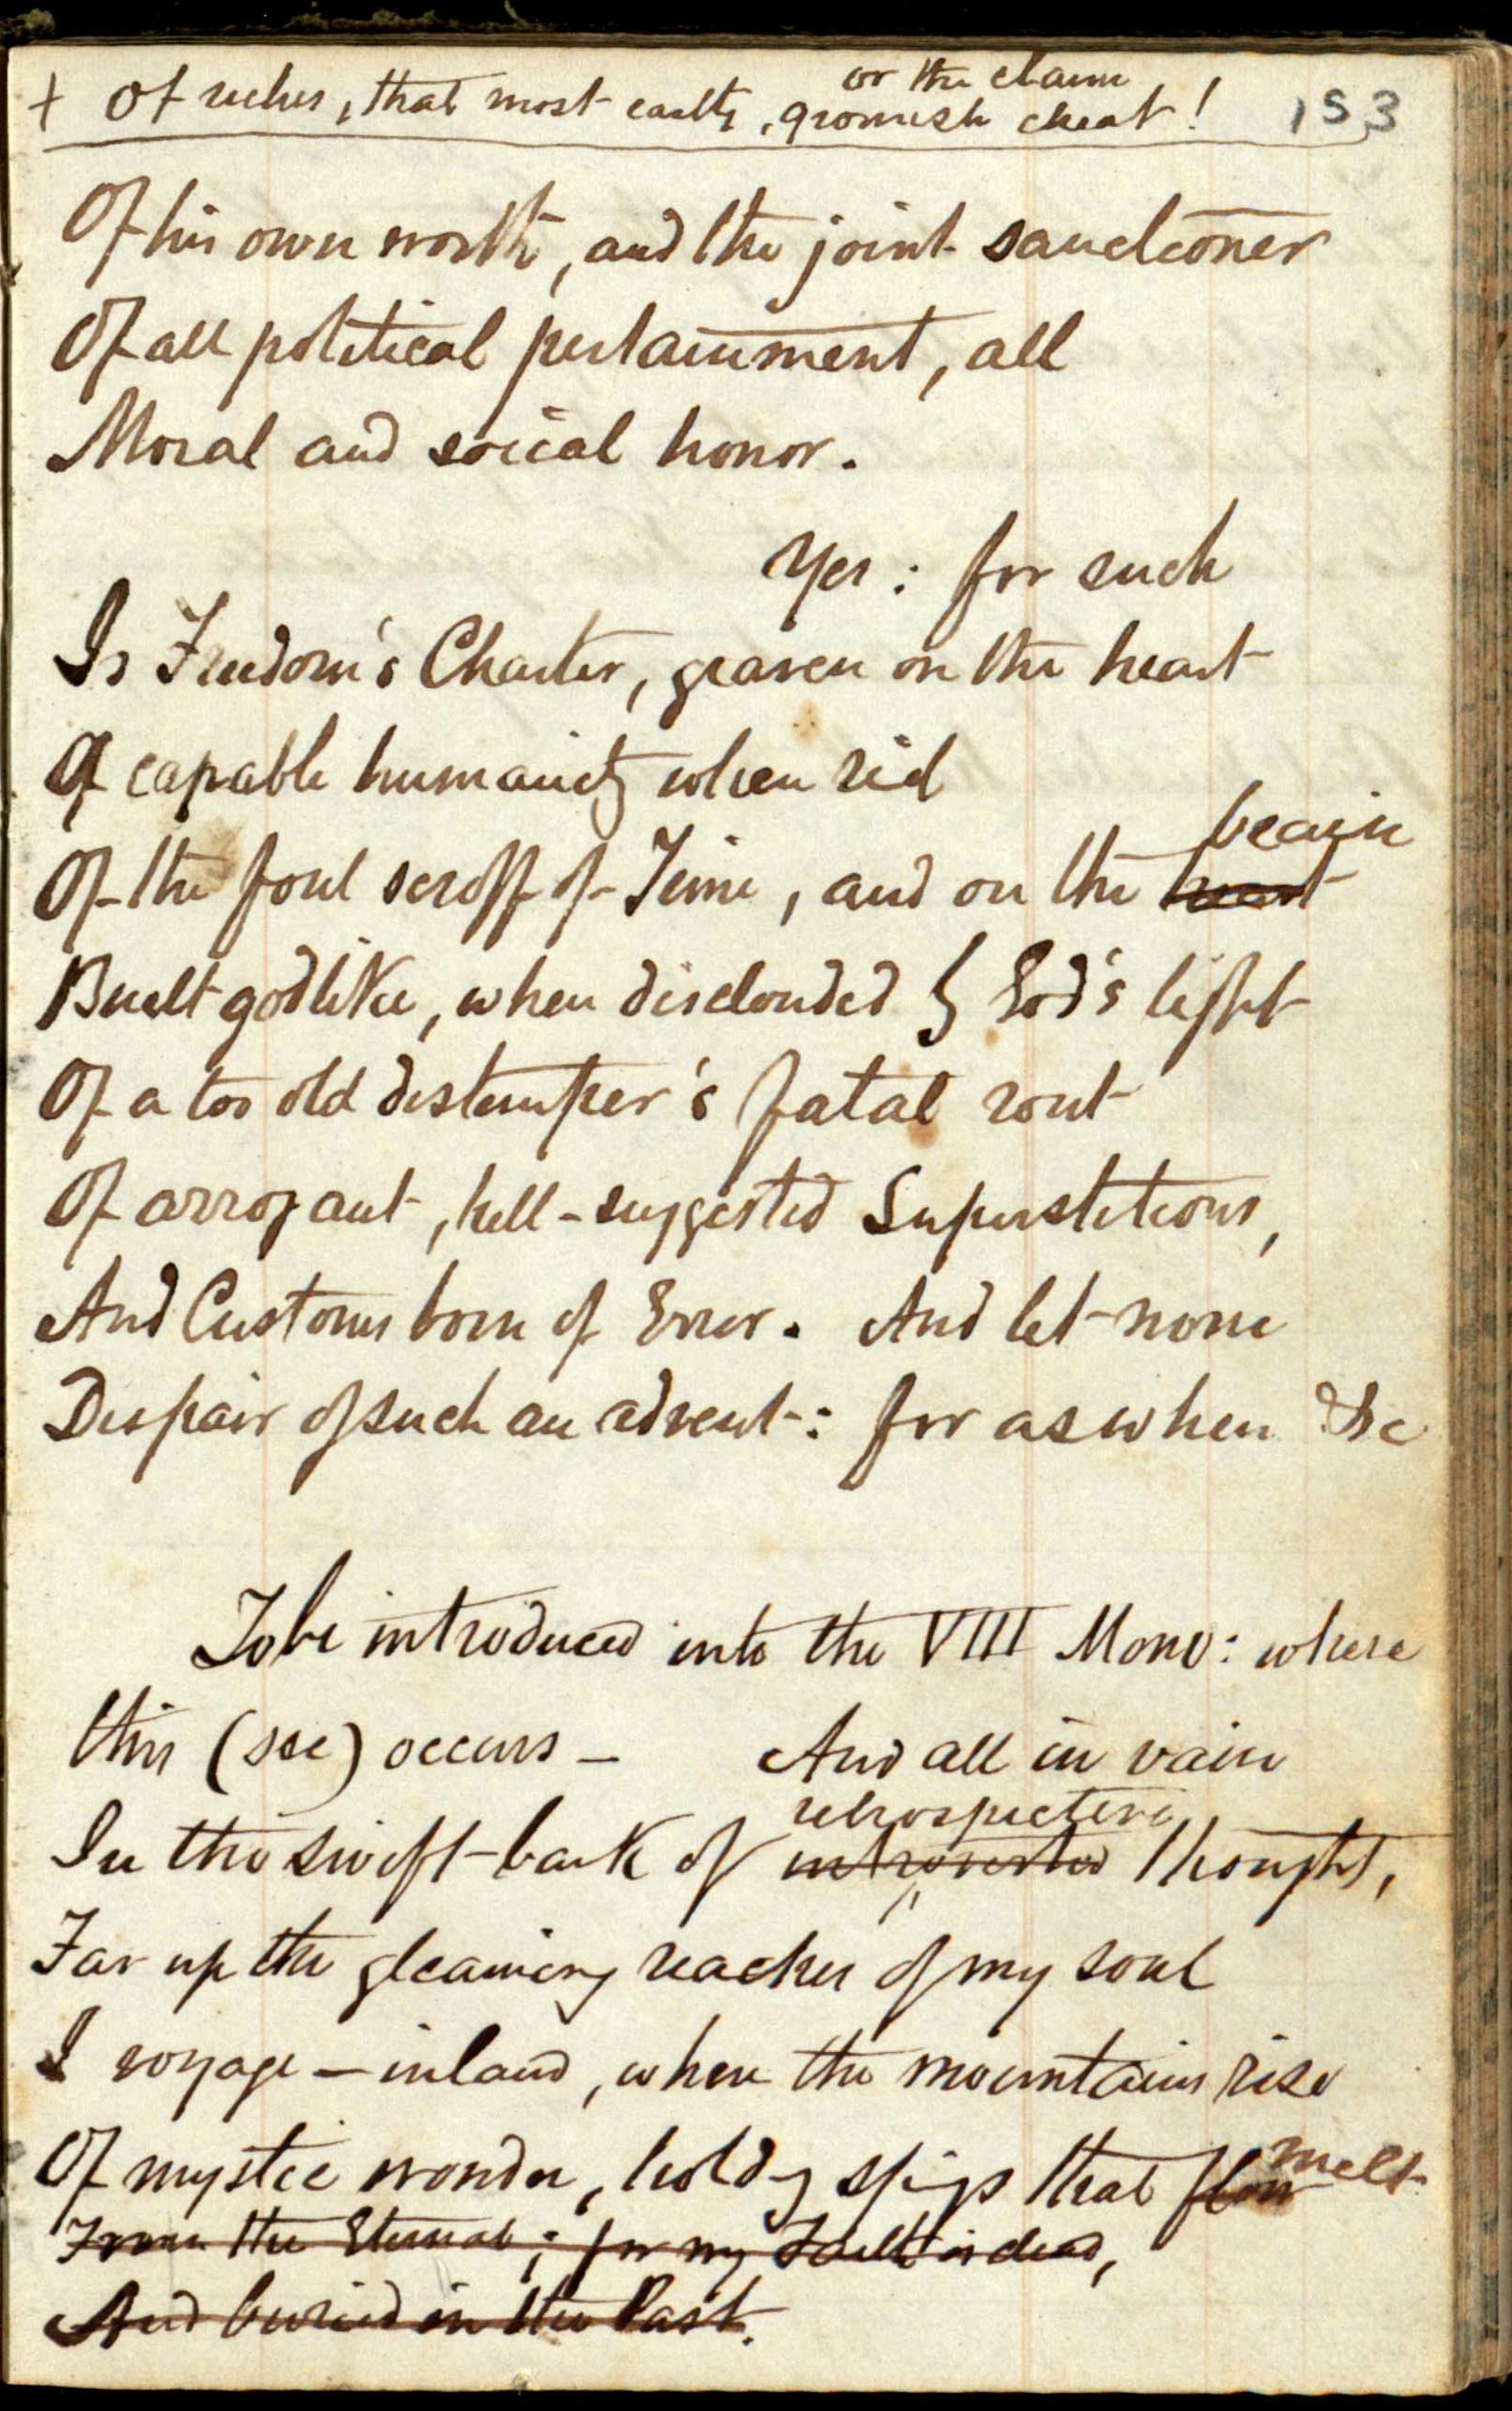 or the claim
+ Of riches, that most earthy, gnomish cheat! 153
Of his own worth, and the joint sanctioner
Of all political pertainment, all
Moral and social honor.
Yes: for such
Is Freedom's Charter, graven on the heart
Of capable humanity when rid
Of the foul scroff of Time, and on the heart brain
Built godlike, when disclouded by God's light
Of a too old distemper's fatal rout
Of arrogant, hell-suggested Superstitions,
And Customs born of Error. And let none
Despair of such an advent: for as when &c
To be introduced into the VIII Mono: where
this (see) occurs — And all in vain
retrospective
In the swift bark of introverted Thought,
Far up the gleaming reaches of my soul
I voyage — inland, where the mountains rise
Of mystic wonder, holdg spgs that flow melt
From the Eternal; for my Faith is dead,
And buried in the Past.